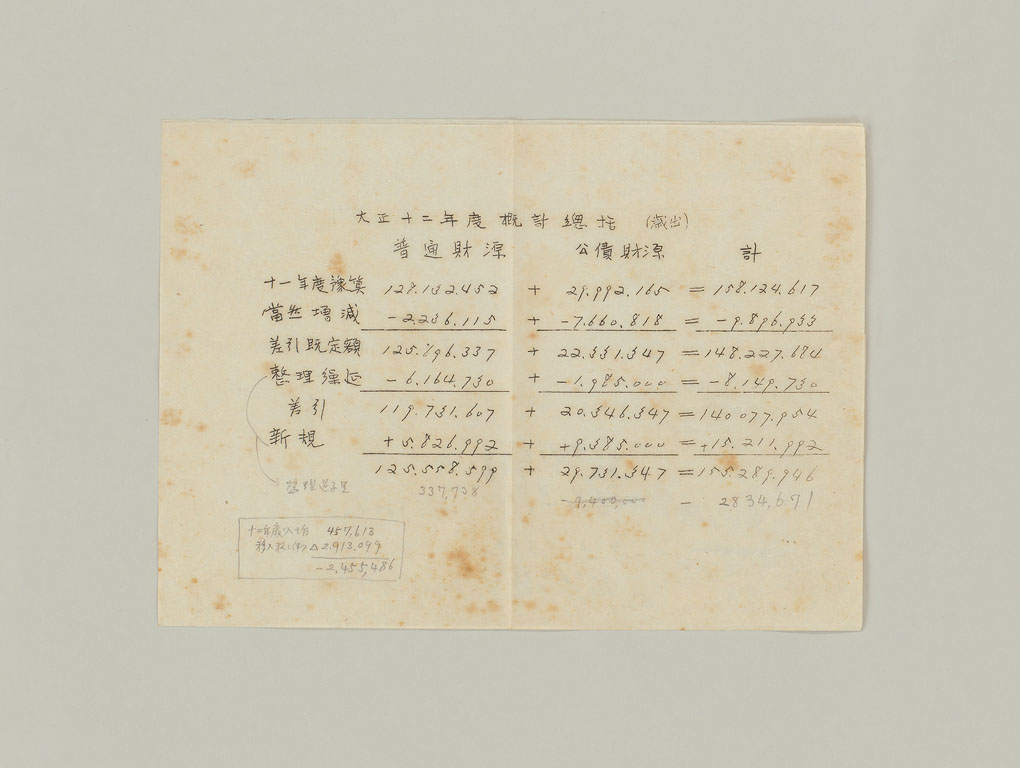 大正十二年度概計總括 (歳出)
普通財源 公債財源 計
十一年度豫算 128.132.452 + 29.992.165 = 158.124.617
當然増減 -2.236.115 + -7.660.818 = -9.896.933
差引既定額 125.896.337 + 22.331.347 = 148.227.684
整理繰延 -6.164.730 + -1.985.000 = -8.149.730
差引 119.731.607 + 20.346.347 = 140.077.954
新規 +5.826.992 + +9.385.000 = +15.211.992
125.558.599 + 29.731.347 = 155.289.946
337,738 - 2834,671
457,613
△2,913,099
-2,455,486